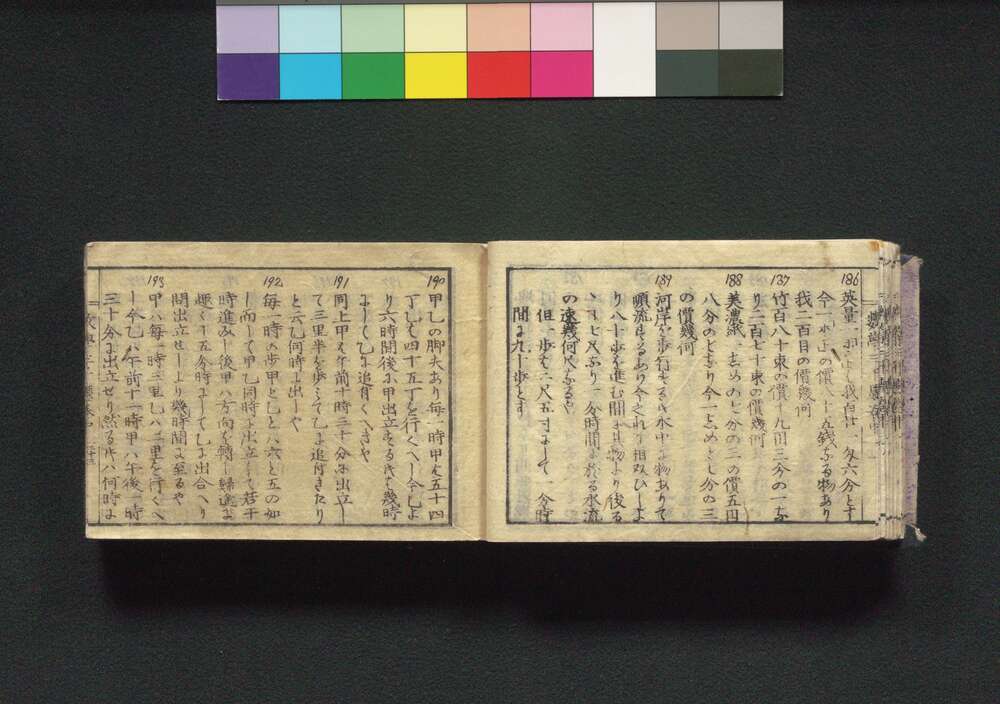 186
英量一オンスハ我百
今一オンスの價八十五錢なる物あり
我二百目の價幾何
187
竹百八十束の價十九圓三分の一な
り二百七十束の價幾何
188
美濃紙一しめの七分の二の價五円
八分の七なり今一しめと七分の三
の價幾何
189
河岸を歩行する氏水中に物ありて
順流するあり今之れと相双ひしよ
り八十歩を進む間に其物より後る
一分時間に於る水流
の速幾何なるや
但一歩を二尺五寸にして一分時
間に九十歩とす
190
甲乙の脚夫あり毎一時甲は五十四
丁乙は四十五丁を行くへし今乙よ
り六時間後に甲出立する氏は幾時
にして乙に追着くへきや
191
同上甲は午前十時三十分に出立し
て三里半を歩して乙に追付きたり
と云乙何時に出しや
192
毎一時の歩甲と乙とハ六と五の如
し而して甲乙同時に出立して若干
時進みし後甲ハ方向を轉し歸途に
趣く十五分時にして乙に出合へり
問出立せしより幾時間に至るや
193
甲ハ毎一時三里乙ハ二里を行くへ
し今乙ハ午前十一時甲ハ午後一時
三十分に出立せり然る氏ハ何時に